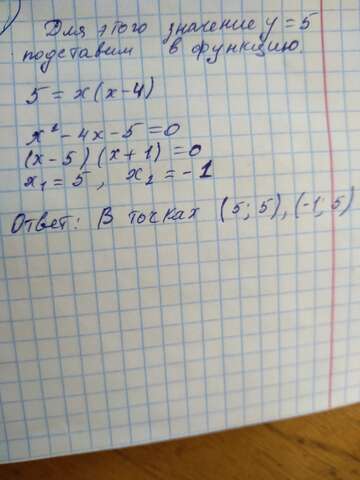 Для этого значение y = 5
подставим в функцию.
5 = x(x-4)
x² - 4x - 5 = 0
(x-5)(x+1) = 0
x₁ = 5, x₂ = -1
Ответ: В точках (5; 5), (-1; 5)